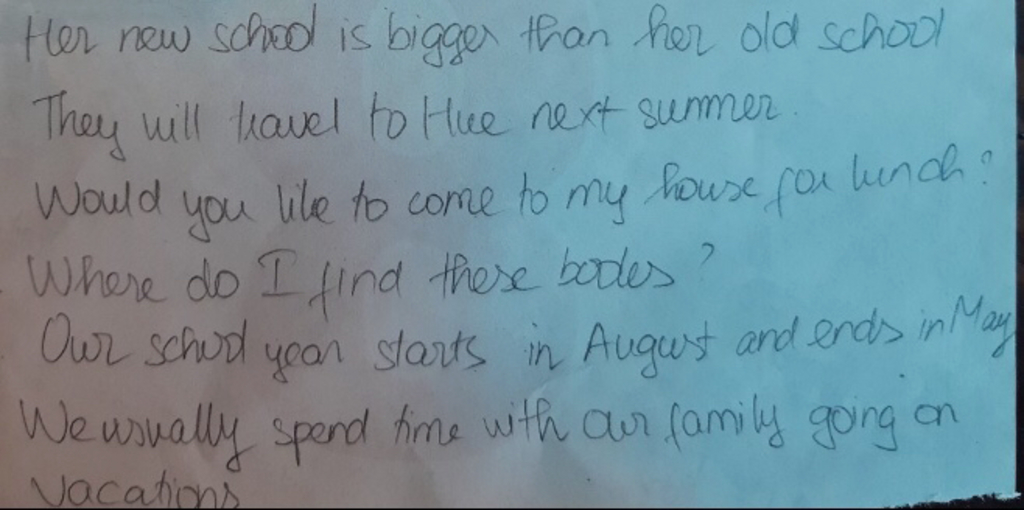 Her new school is bigger than her old school
They will travel to Hue next summer.
Would you like to come to my house for lunch?
Where do I find these books?
Our school year starts in August and ends in May
We usually spend time with our family going on
vacations